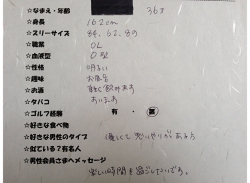 ☆なまえ・年齢 36才
☆身長 162cm
☆スリーサイズ 84.62.89
☆職業 OL
☆血液型 O型
☆性格 明るい
☆趣味 お風呂
☆お酒 飲みます
☆タバコ すいます
☆ゴルフ経験 有・無
☆好きな食べ物
☆好きな男性のタイプ 優しくて思いやりがある方
☆似ている?有名人
☆男性会員さまへメッセージ
楽しい時間を過ごしたいです。